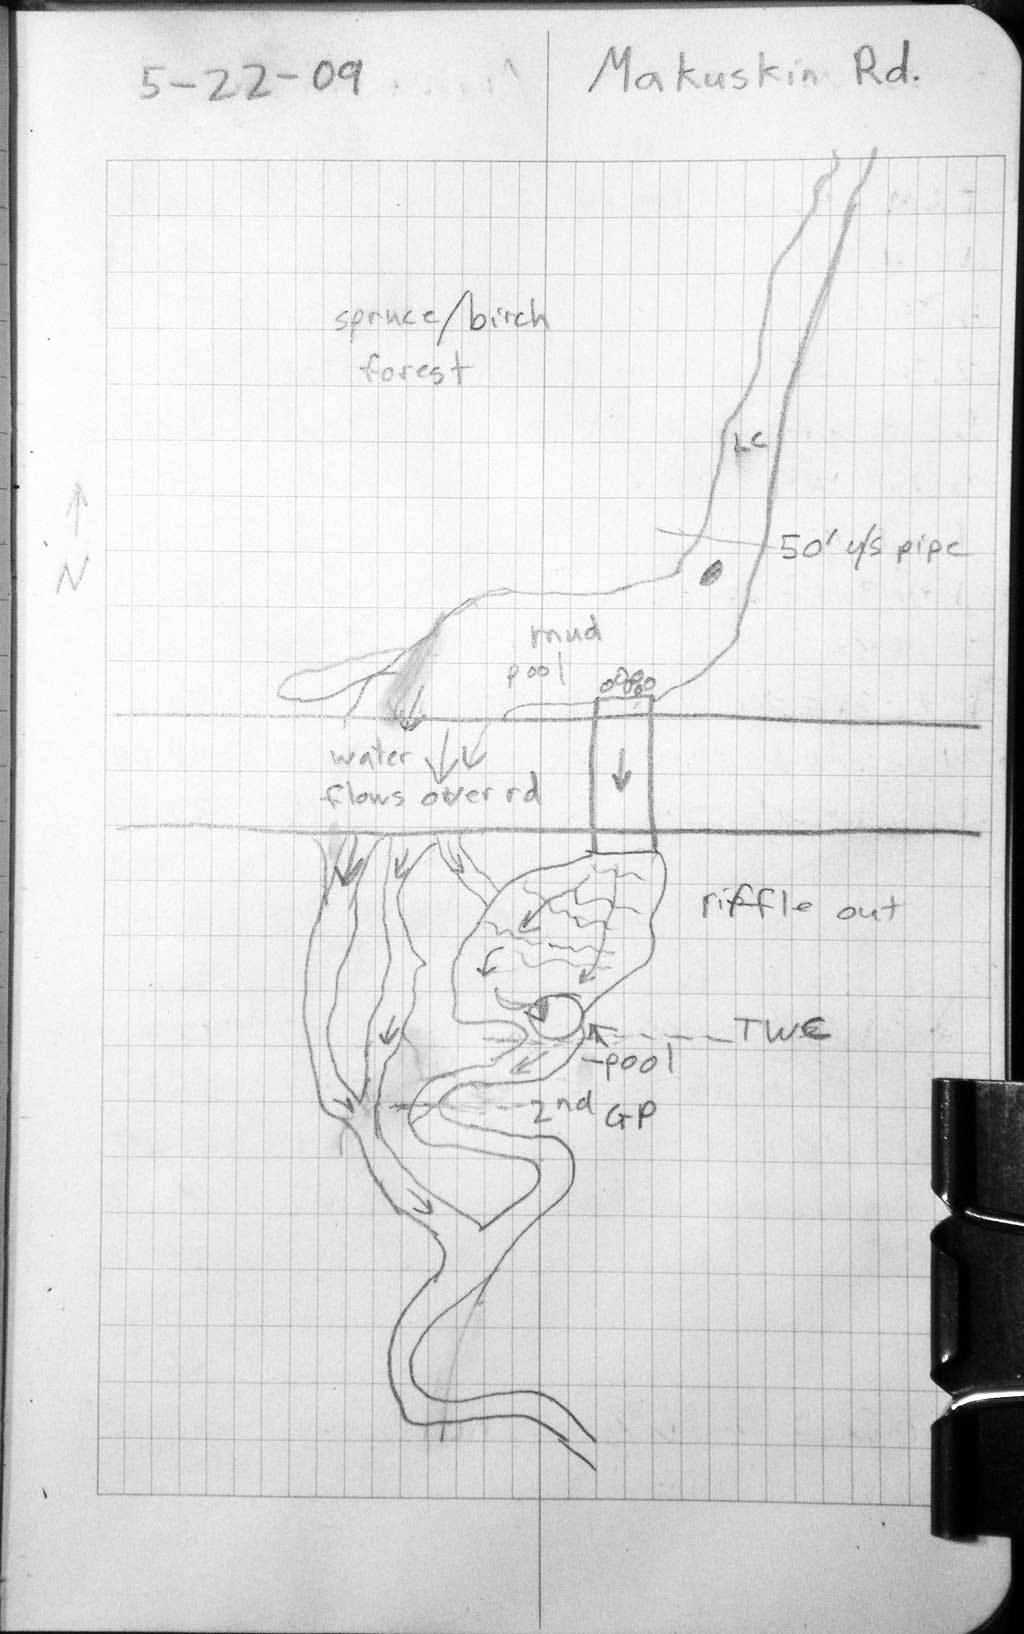 5-22-09
Makuskin Rd.
spruce/birch
forest
50' u/s pipe
N
mud
pool
water
flows over rd
riffle out
TWE
-pool
2nd GP